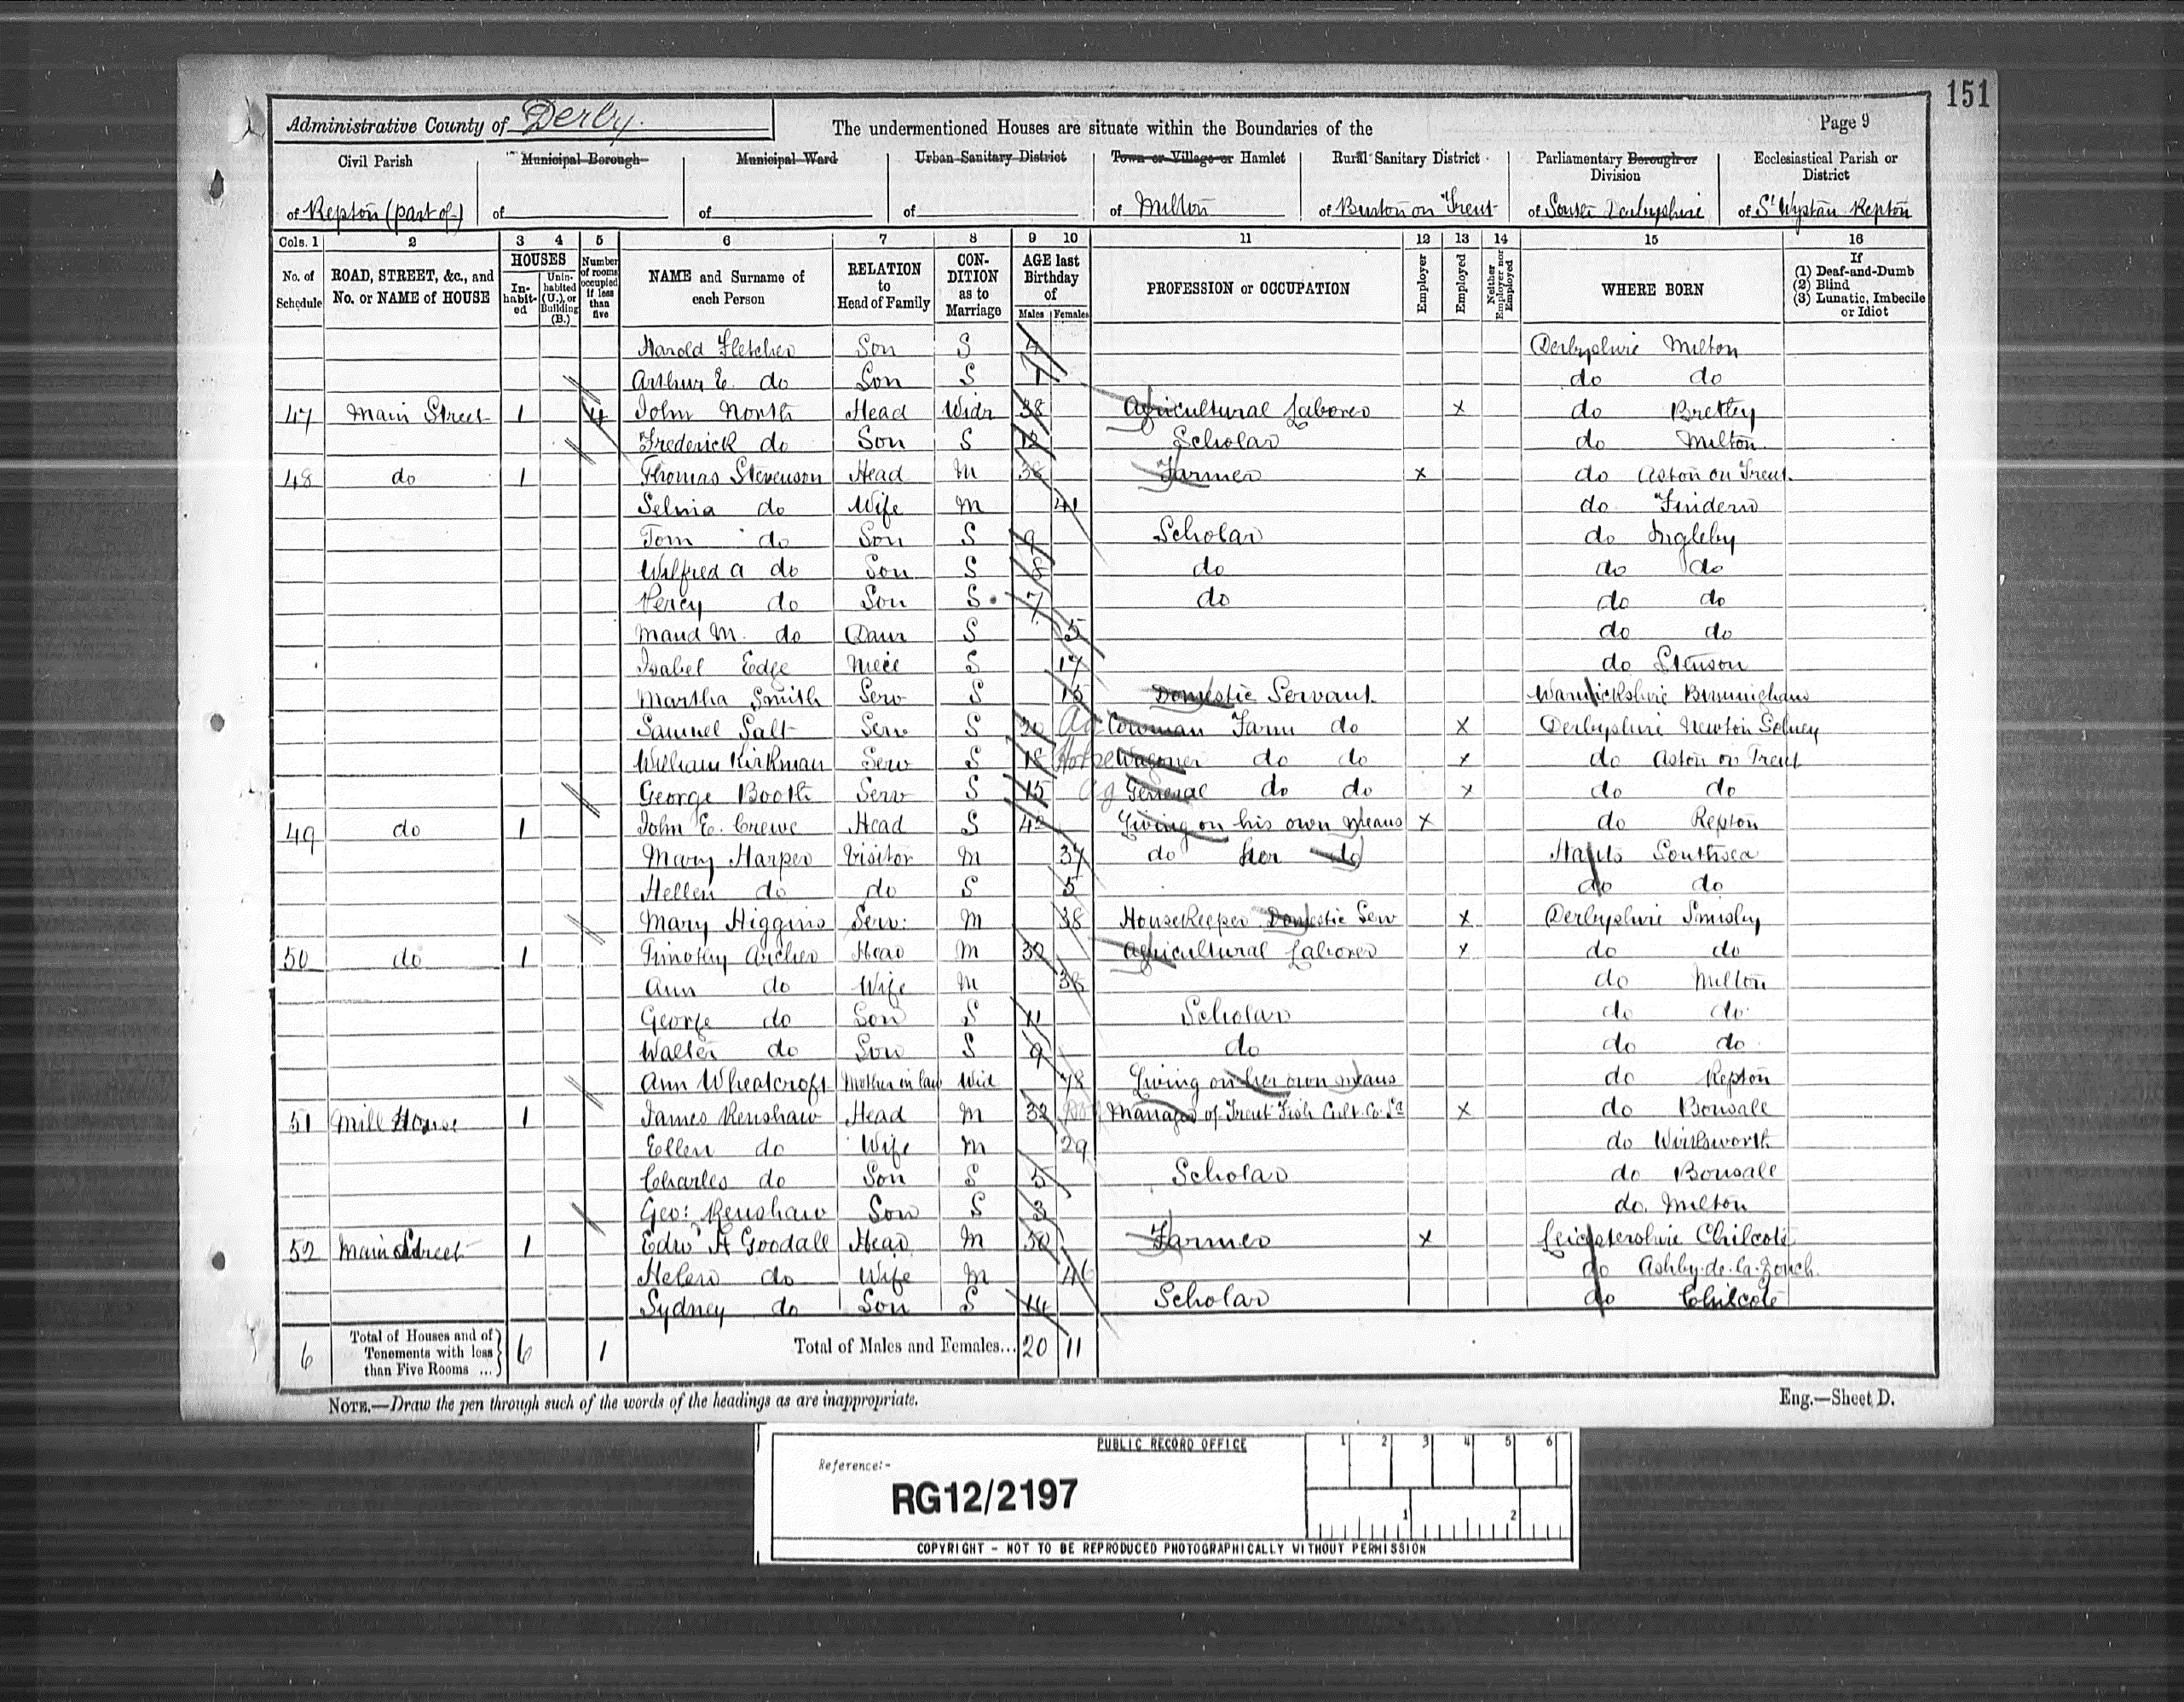 151
Administrative County of Derby. The undermentioned Houses are situate within the Boundaries of the Page 9
Civil Parish Municipal Borough Municipal Ward Urban Sanitary District Town or Village or Hamlet Rural Sanitary District Parliamentary Borough or Division Ecclesiastical Parish or District
of Repton (part of) of of of of Milton of Burton on Trent of South Derbyshire of St Wystan Repton
Cols. 1 2 3 4 5 6 7 8 9 10 11 12 13 14 15 16
No. of Schedule ROAD, STREET, &c., and No. or NAME of HOUSE HOUSES Inhabited Uninhabited (U.), or Building (B.) Number of rooms occupied if less than five NAME and Surname of each Person RELATION to Head of Family CONDITION as to Marriage AGE last Birthday of Males Females PROFESSION or OCCUPATION Employer Employed Neither Employer nor Employed WHERE BORN If (1) Deaf-and-Dumb (2) Blind (3) Lunatic, Imbecile or Idiot
Harold Fletcher Son S 4 Derbyshire Milton
Arthur E. do Son S 1 do do
47 Main Street 1 4 John North Head Widr 38 Agricultural Laborer X do Bretby
Frederick do Son S 12 Scholar do Milton
48 do 1 Thomas Stevenson Head M 38 Farmer X do Aston on Trent
Selina do Wife M 41 do Findern
Tom do Son S 9 Scholar do Ingleby
Wilfred A do Son S 8 do do do
Percy do Son S 7 do do do
Maud M. do Daur S 5 do do
Isabel Edge Niece S 17 do Stenson
Martha Smith Serv S 15 Domestic Servant Warwickshire Birmingham
Samuel Salt Serv S 20 Ag Cowman Farm do X Derbyshire Newton Solney
William Kirkman Serv S 18 Horse Wagoner do do X do Aston on Trent
George Booth Serv S 15 Ag General do do X do do
49 do 1 John E. Crewe Head S 42 Living on his own Means X do Repton
Mary Harper Visitor M 37 do her do Hants Southsea
Hellen do do S 5 do do
Mary Higgins Serv: M 38 Housekeeper Domestic Serv X Derbyshire Smisby
50 do 1 Timothy Archer Head M 32 Agricultural Laborer X do do
Ann do Wife M 38 do Milton
George do Son S 11 Scholar do do
Walter do Son S 9 do do do
Ann Wheatcroft Mother in law Wid 78 Living on her own means do Repton
51 Mill House 1 James Renshaw Head M 32 Manager of Trent Fish Cult. Co. Ld X do Bonsall
Ellen do Wife M 29 do Wirksworth
Charles do Son S 5 Scholar do Bonsall
Geo: Renshaw Son S 3 do Milton
52 Main Street 1 Edwd A Goodall Head M 50 Farmer X Leicestershire Chilcote
Helen do Wife M 46 do Ashby-de-la-Zouch
Sydney do Son S 14 Scholar do Chilcote
6 Total of Houses and of Tenements with less than Five Rooms ... 6 1 Total of Males and Females... 20 11
NOTE.—Draw the pen through such of the words of the headings as are inappropriate. Eng.—Sheet D.
PUBLIC RECORD OFFICE 1 2 3 4 5 6
Reference:-
RG12/2197
1 2
COPYRIGHT - NOT TO BE REPRODUCED PHOTOGRAPHICALLY WITHOUT PERMISSION